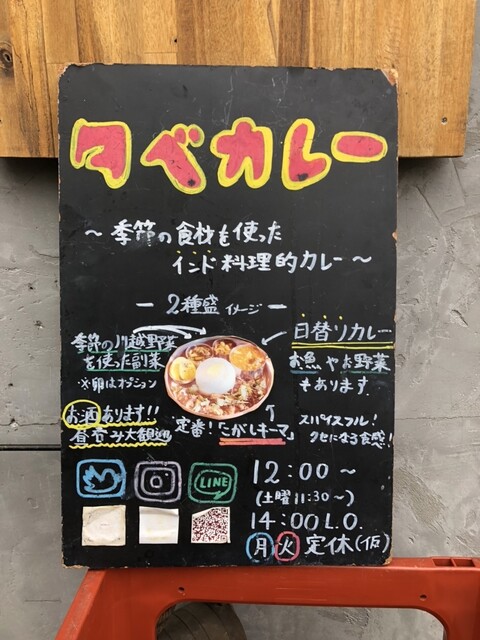 タベカレー
～季節の食材を使った
インド料理的カレー～
ー2種盛イメージー
季節の川越野菜
を使った副菜
※卵はオプション
日替りカレー
お魚やお野菜
もあります
お酒あります!!
昼呑み大歓迎
定番!「こがしキーマ」
スパイスフル!
クセになる食感!
LINE
12:00～
(土曜11:30～)
14:00 L.O.
月火定休(仮)